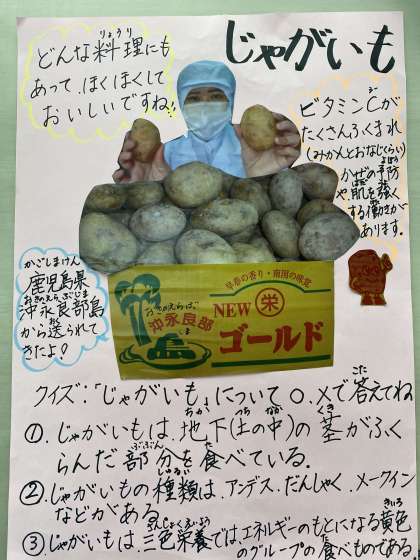 じゃがいも
どんな料理にも
りょうり
あって、ほくほくして
おいしいですね!!
ビタミンCが
シー
たくさんふくまれ
(みかんとおなじくらい)
かぜの予防
よぼう
や、肌を強く
はだ
する働きが
あります。
かごしまけん
鹿児島県
おきのえらぶじま
沖永良部島
から送られて
きたよ!
早春の香り・南国の味覚
おきのえらぶ
沖永良部
NEW 栄
ゴールド
クイズ:「じゃがいも」について○、×で答えてね
こた
①.じゃがいもは、地下(土の中)の茎がふく
ちか つち なか くき
らんだ部分を食べている。
ぶぶん た
②.じゃがいもの種類は、アンデス、だんしゃく、メークイン
しゅるい
などがある。
③.じゃがいもは、三色栄養では、エネルギーのもとになる黄色
さんしょくえいよう きいろ
のグループの食べものである